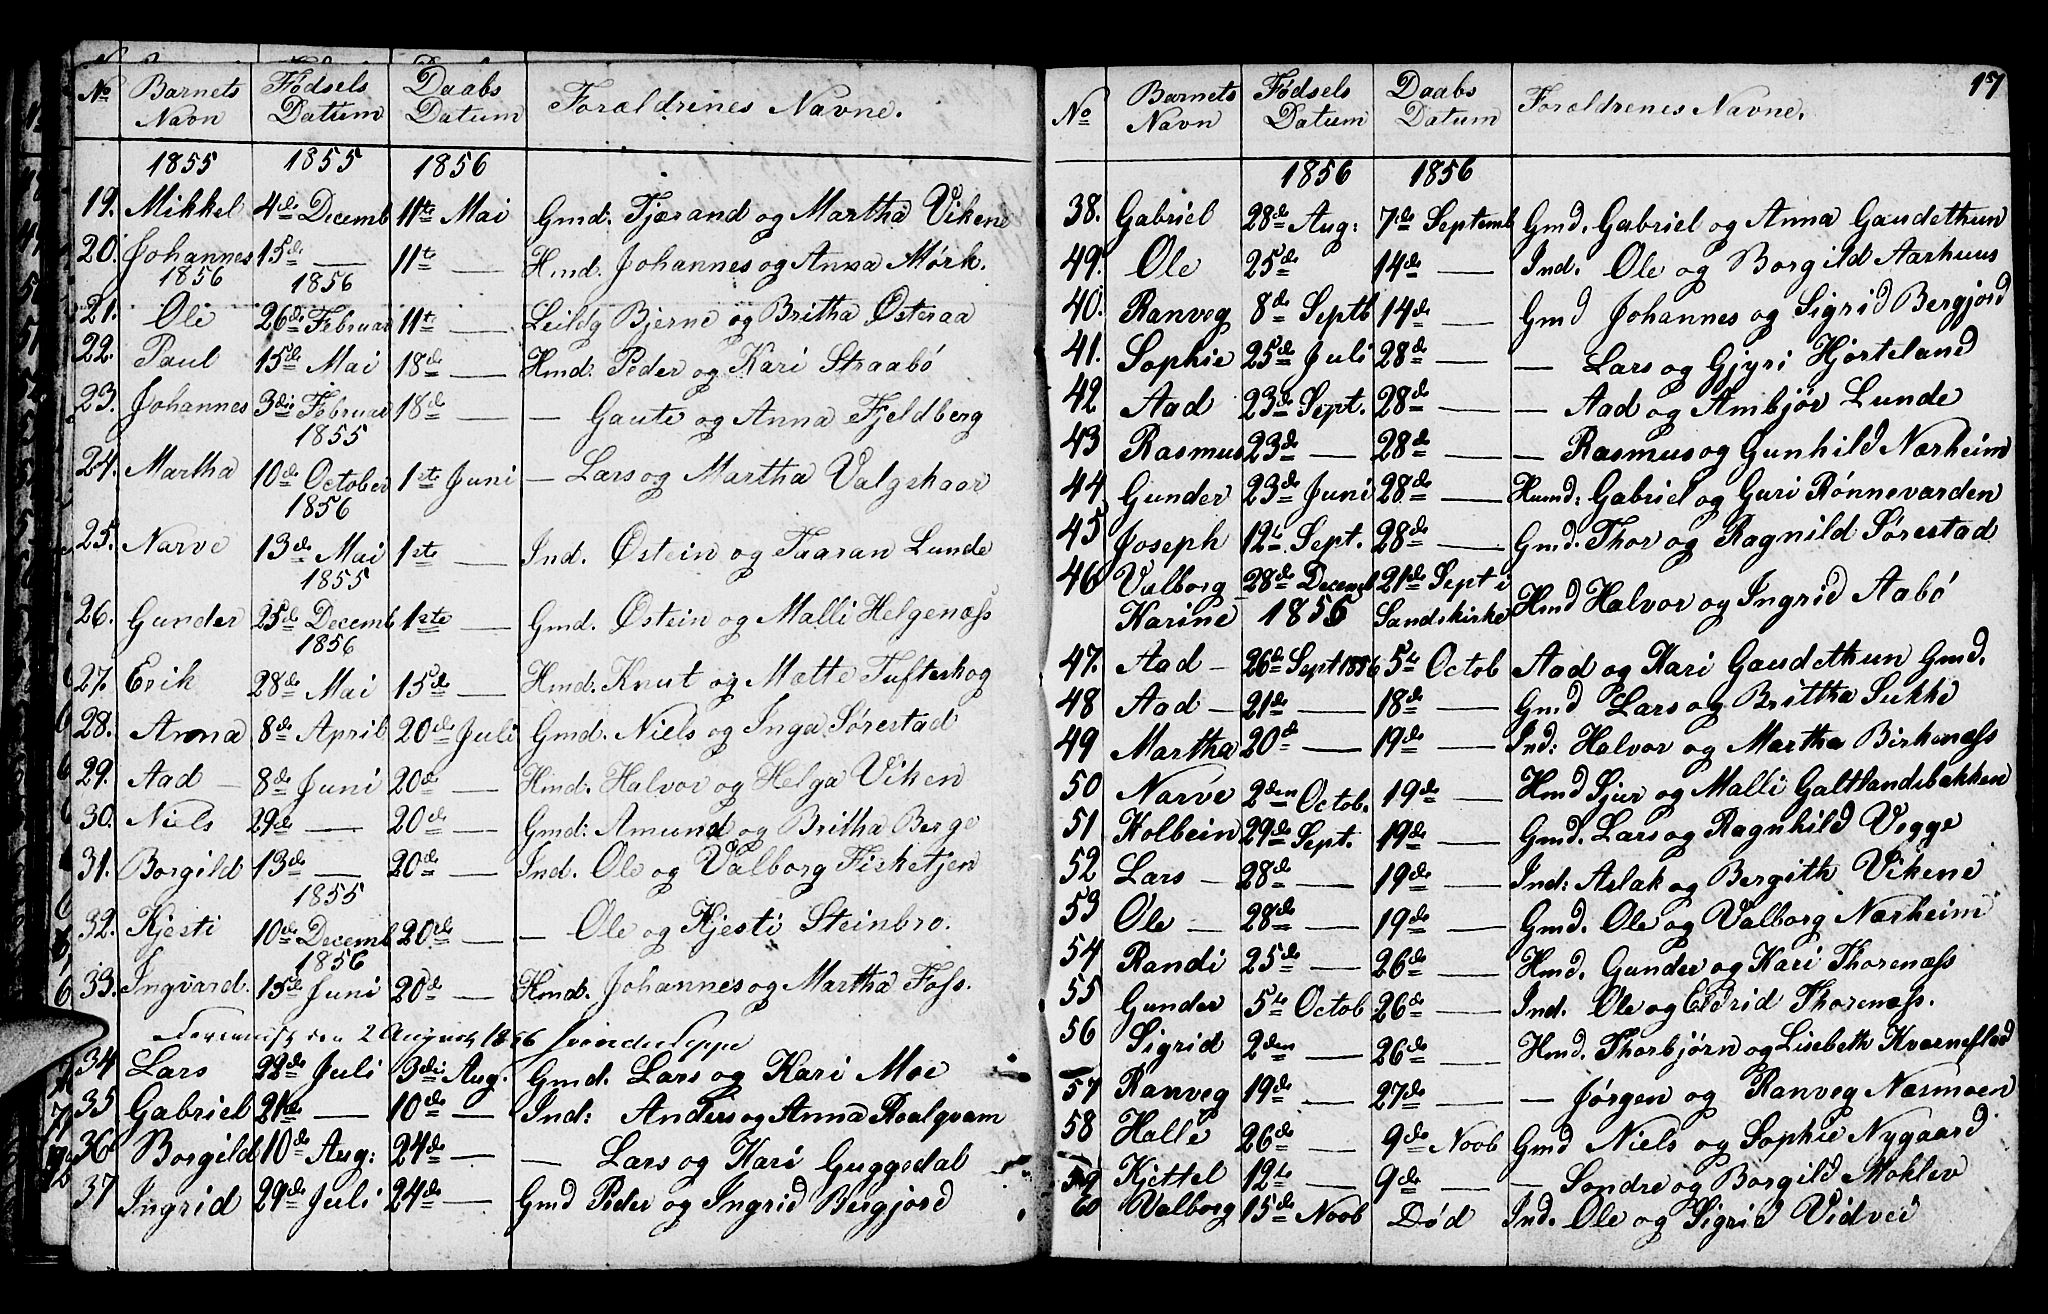 No Barnets Navn Fødsels Datum Daabs Datum Forældrenes Navne.
1855 1855 1856
19. Mikkel 4de Decemb 11te Mai Gmd. Tjærand og Martha Vikene
20. Johannes 15de — 11te — Hmd. Johannes og Anna Mørk.
1856 1856
21. Ole 26de Februar 11te — Leildg Bjerne og Britha Østeraa
22. Paul 15de Mai 18de — Hmd. Peder og Kari Straabø
23. Johannes 3die Februar 18de — — Gaute og Anna Fjeldberg
1855
24. Martha 10de October 1ste Juni — Lars og Martha Valgskaar
1856
25. Narve 13de Mai 1ste — Ind. Østein og Taaran Lunde
1855
26. Gunder 25de Decemb 1ste — Gmd. Østein og Malli Helgenæss
1856
27. Erik 28de Mai 15de — Hmd. Knut og Mætte Tufteskog
28. Anna 8de April 20de Juli Gmd. Niels og Inga Sørestad
29. Aad — 8de Juni 20de — Hmd. Halvor og Helga Viken
30. Niels 29de — 20de — Gmd: Amund og Britha Berge
31. Borgild 13de — 20de — Ind. Ole og Valborg Fisketjen
1855
32. Kjesti 10de Decemb 20de — — Ole og Kjesti Steinbro.
1856
33. Ingvard. 15de Juni 20de — Hmd. Johannes og Martha Foss.
den 2 August 1856
34 Lars 22de Juli 3die Aug. Gmd. Lars og Kari Moe
35 Gabriel 21de — 10de — Ind: Anders og Anna Roalqvam
36 Borgild 10de Aug: 24de — — Lars og Kari Guggedal
37 Ingrid 29de Juli 24de — Gmd Peder og Ingrid Bergjord
17
No Barnets Navn Fødsels Datum Daabs Datum Forældrenes Navne.
1856 1856
38. Gabriel 28de Aug: 7de Septemb Gmd. Gabriel og Anna Gaudethun
49. Ole 25de 14de — Ind. Ole og Borgild Aarhuus
40. Ranveg 8de Septb 14de — Gmd Johannes og Sigrid Bergjord
41. Sophie 25de Juli 28de — — Lars og Gjyri Hjorteland
42 Aad 23de Sept. 28de — — Aad og Ambjør Lunde
43 Rasmus 23de — 28de — — Rasmus og Gunhild Nærheim
44 Gunder 23de Juni 28de — Humd: Gabriel og Guri Rønnevarden
45 Joseph 12te Sept. 28de — Gmd. Thor og Ragnild Sørestad
46 Valborg 28de Decemb 21de Sept i Hmd Halvor og Ingrid Aabø
Karine 1855 Sandskirke
47. Aad — 26de Sept 1856 5te Octob Aad og Kari Gaudethun Gmd.
48 Aad — 21de — 18de — Gmd Lars og Brittha Sukke
49 Martha 20de — 19de — Ind: Halvor og Martha Birkenæss
50 Narve 2den Octob. 19de — Hmd Sjur og Malli Galtlandsbakken
51 Kolbein 29de Sept. 19de — Gmd. Lars og Ragnhild Vegge
52 Lars — 28de — 19de — Ind: Aslak og Bergith Vikene
53 Ole — 28de — 19de — Gmd. Ole og Valborg Nærheim
54 Randi 25de — 26de — Hmd. Gunder og Kari Thorenæss
55 Gunder 5te Octob 26de — Ind. Ole og Eldrid Thorenæss.
56 Sigrid 2den — 26de — Hmd. Thorbjørn og Lisebeth Kvarnestad
57 Ranveg 19de — 27de — — Jørgen og Ranveg Næsmoen
58 Halle 26de — 9de Novb Gmd Niels og Sophie Nygaard
59 Kjettel 12te — 9de — — Sondre og Borgild Moklev
60 Valborg 15de Novb Død Ind. Ole og Sigrid Vidvei